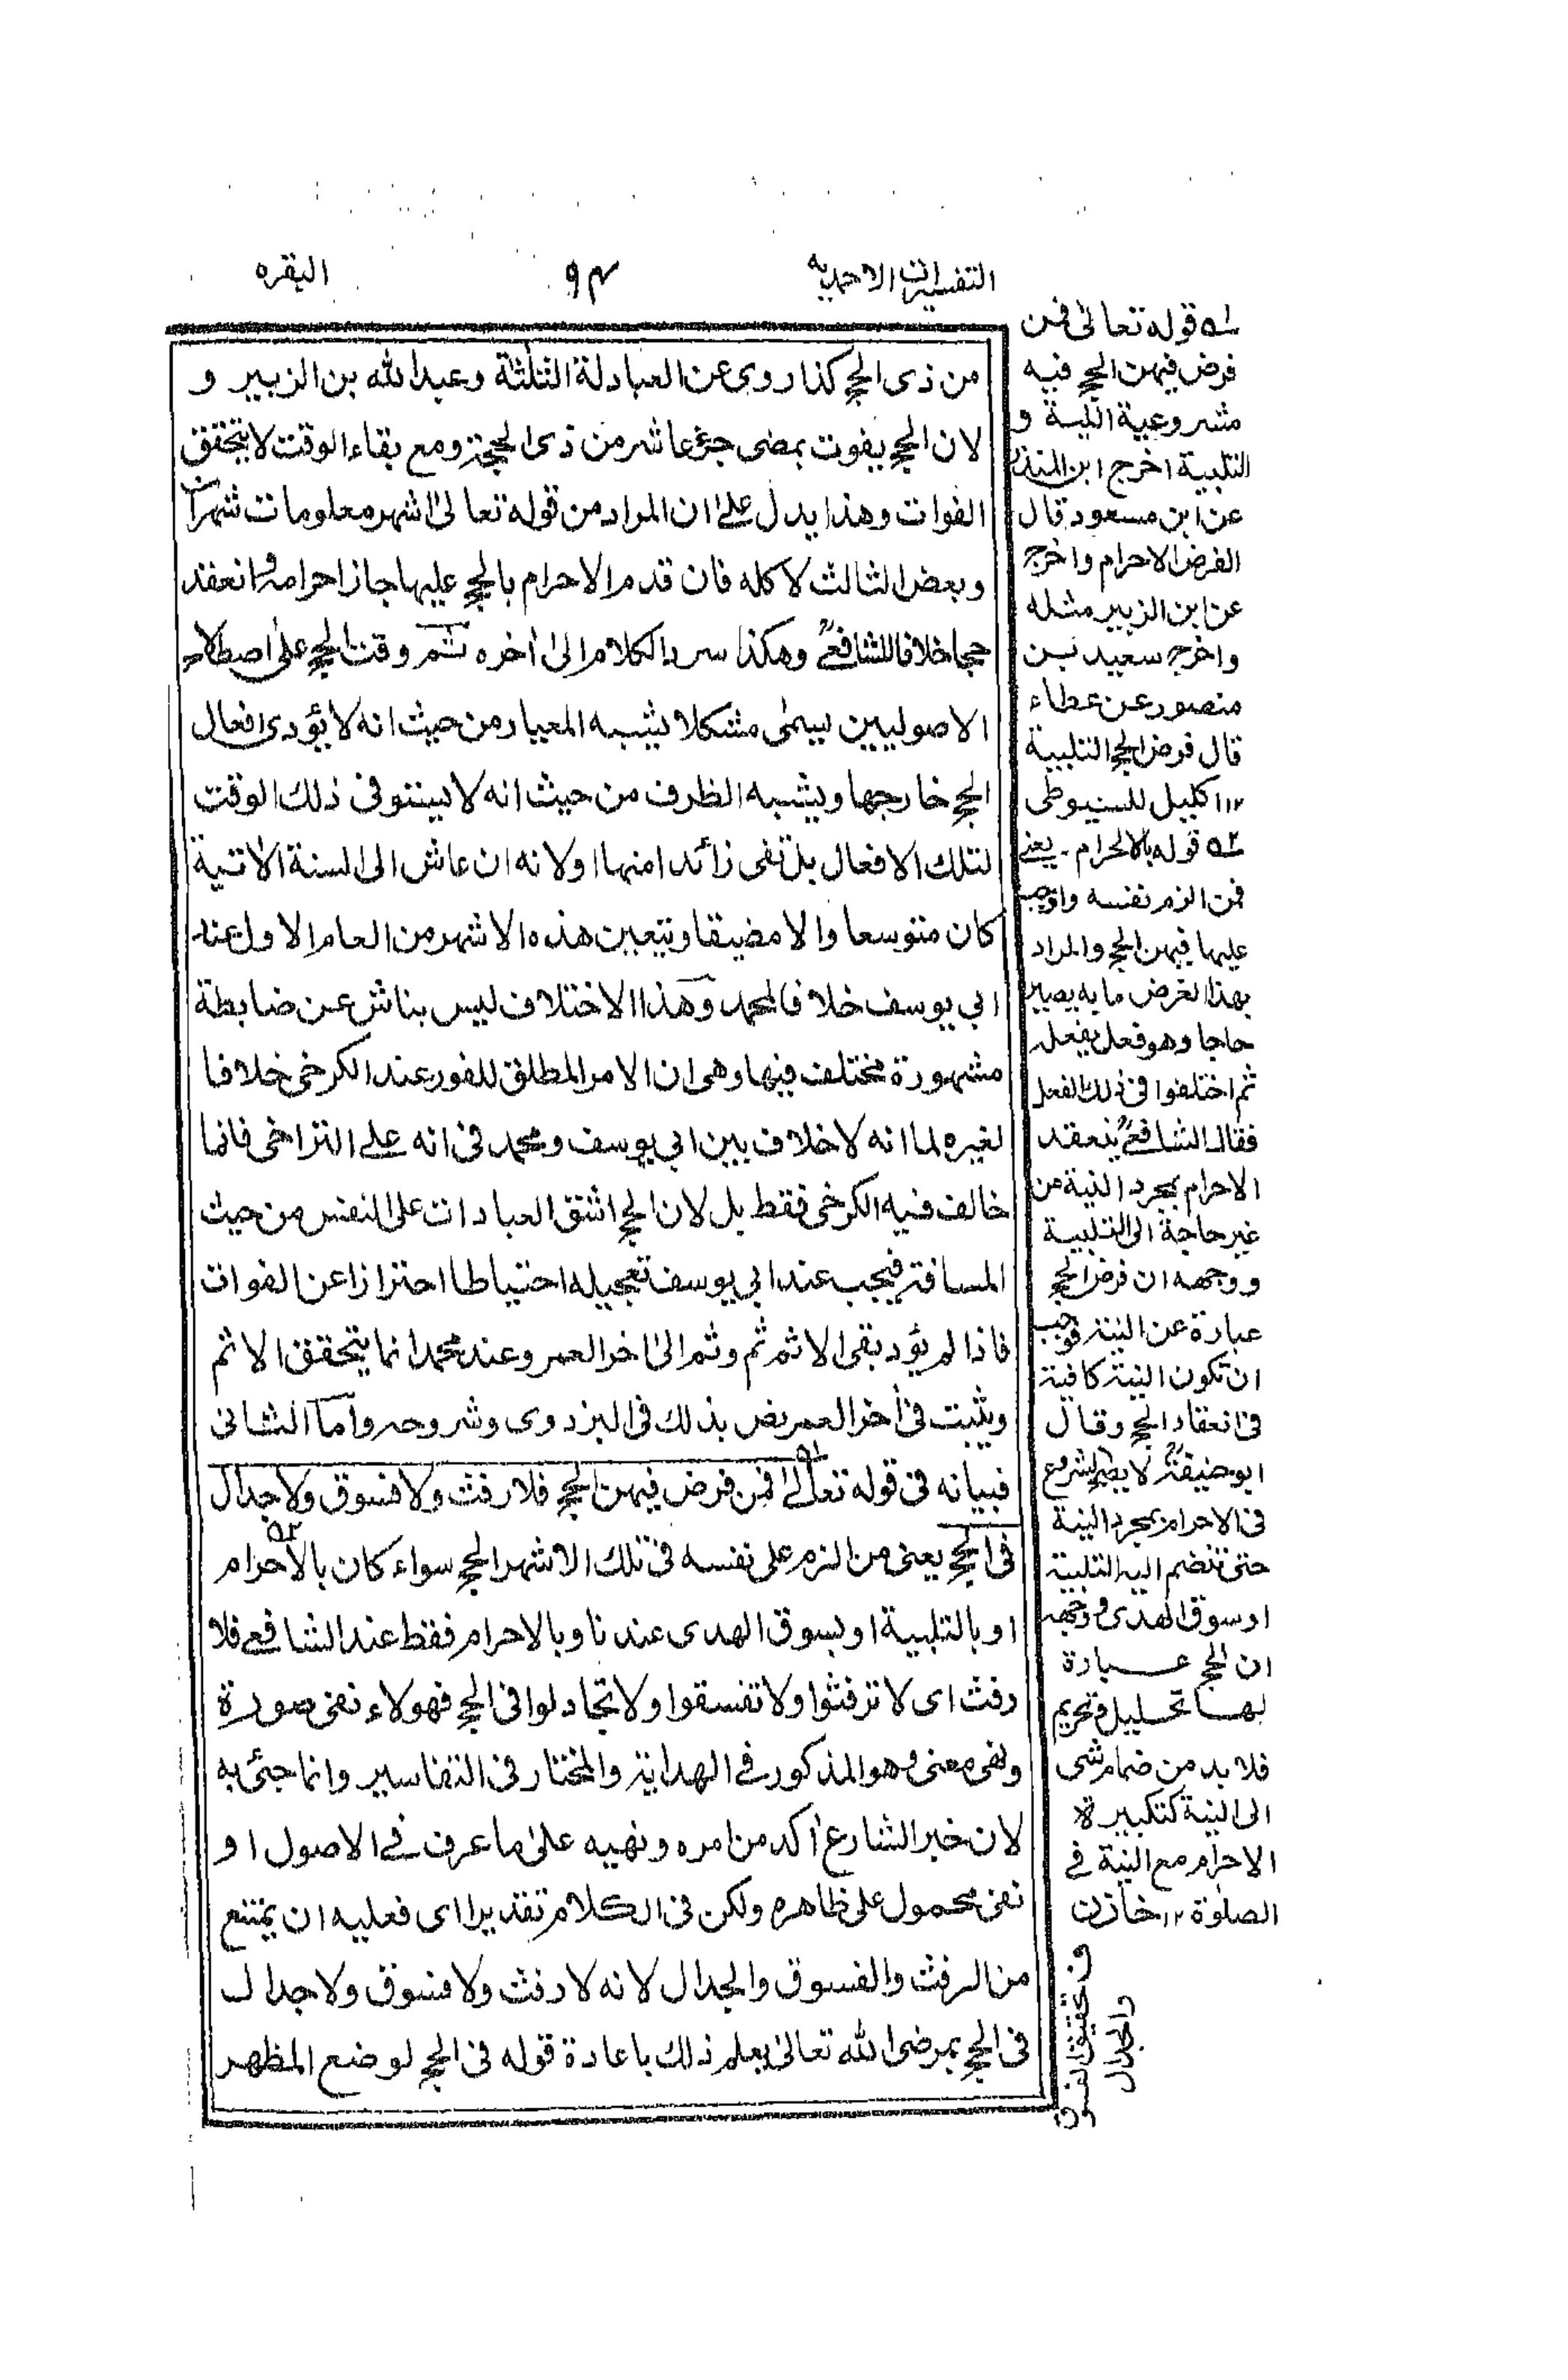 التفسيرات الاحمديه
٩٤
البقره
من ذى الحج كذا روى عن العبادلة الثلثة وعبد الله بن الزبير و
لان الحج يفوت بمضى جزء عاشر من ذى الحجة ومع بقاء الوقت لا يتحقق
الفوات وهذا يدل على ان المراد من قوله تعالى اشهر معلومات شهران
وبعض الثالث لا كله فان قدم الاحرام بالحج عليها جاز احرامه وانعقد
حجا خلافا للشافعىؒ وهكذا سرد الكلام الى اٰخره ثم وقت الحج على اصطلاح
الاصوليين يسمى مشكلا يشبه المعيار من حيث انه لا يؤدى افعال
الحج خارجها ويشبه الظرف من حيث انه لا يستوفى ذلك الوقت
لتلك الافعال بل تفى زائدا منها او لانه ان عاش الى السنة الاٰتية
كان متوسعا والا مضيقا ويتعين هذه الاشهر من العام الاول عند
ابى يوسف خلافا لمحمد وهذا الاختلاف ليس بناش عن ضابطة
مشهورة مختلف فيها وهى ان الامر المطلق للفور عند الكرخى خلافا
لغيره لما انه لا خلاف بين ابى يوسف ومحمد فى انه على التراخى فانما
خالف فيه الكرخى فقط بل لان الحج اشق العبادات على النفس من حيث
المسافة فيجب عند ابى يوسف تعجيله احتياطا احترازا عن الفوات
فاذا لم يؤد بقى الاثم ثم وثم الى اخر العمر وعند محمد انما يتحقق الاثم
ويثبت فى اٰخر العمر نص بذلك فى البزدوى وشروحه واما الثانى
فبيانه فى قوله تعالى ١ه فمن فرض فيهن الحج فلا رفث ولا فسوق ولا جدال
فى الحج يعنى من الزم على نفسه فى تلك الاشهر الحج سواء كان بالاحرام ٢ه
او بالتلبية او بسوق الهدى عندنا وبالاحرام فقط عند الشافعى فلا
رفث اى لا ترفثوا ولا تفسقوا ولا تجادلوا فى الحج فهولاء نفى صورة
ونفى معنى وهو المذكور فى الهداية والمختار فى التفاسير وانما جئ به
لان خبر الشارع اٰكد من امره ونهيه على ما عرف فى الاصول او
نفى محمول على ظاهره ولكن فى الكلام تقديرا اى فعليه ان يمتنع
من الرفث والفسوق والجدال لانه لا رفث ولا فسوق ولا جدال
فى الحج بمرضى الله تعالى يعلم ذلك باعادة قوله فى الحج لوضع المظهر
١ه قوله تعالى فمن
فرض فيهن الحج فيه
مشروعية النية و
التلبية اخرج ابن المنذر
عن ابن مسعود قال
الفرض الاحرام واخرج
عن ابن الزبير مثله
واخرج سعيد بن
منصور عن عطاء
قال فرض الحج التلبية
١٢ اكليل للسيوطى
٢ه قوله بالاحرام۔ يعنى
فمن الزم نفسه واوجب
عليها فيهن الحج والمراد
بهذا الفرض ما به يصير
حاجا وهو فعل يفعله
ثم اختلفوا فى ذلك الفعل
فقال الشافعىؒ ينعقد
الاحرام بمجرد النية من
غير حاجة الى التلبية
ووجهه ان فرض الحج
عبارة عن النية فوجب
ان تكون النية كافية
فى انعقاد الحج وقال
ابوحنيفةؒ لا يصح الشروع
فى الاحرام بمجرد النية
حتى تنضم اليه التلبية
او سوق الهدى ووجهه
ان الحج عبادة
لها تحليل وتحريم
فلا بد من ضمام شى
الى النية كتكبيرة
الاحرام مع النية فى
الصلوٰة ١٢ خازن
ف تحقيق الفسوق
والجدال